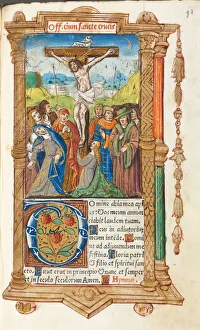 Officium sancte crucis
Domine labia mea ape
ries: Et os meum annun
tiabit laudem tuam.
Deus in adiutorium
meum intende. Domine
ad adiuvandum me
festina. Gloria patri
et filio et spiritui san
cto. Sicut erat in principio et nunc et semper
et in secula seculorum Amen. Hymnus